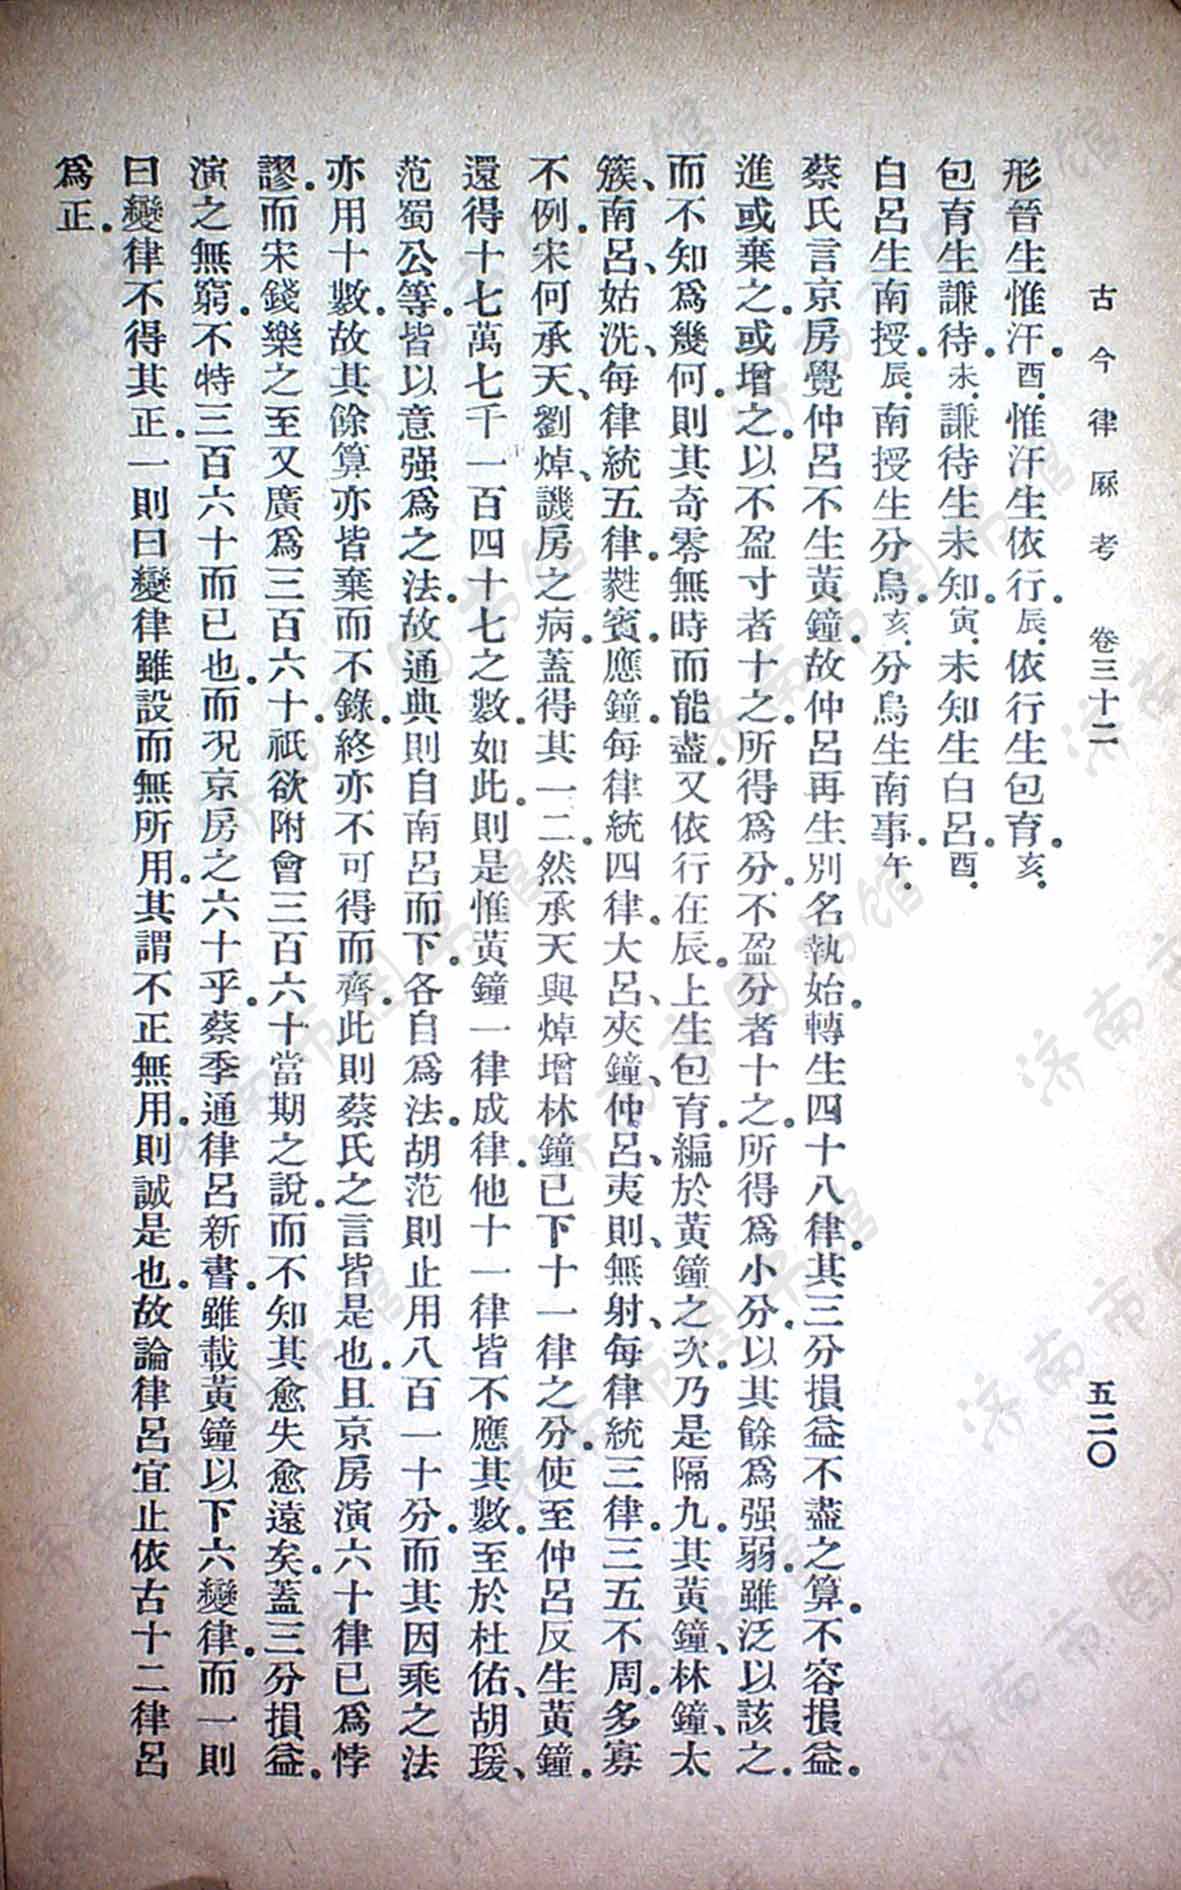 古今律厤考 卷三十二 五二〇
形晉生惟汗。酉。惟汗生依行。辰。依行生包育。亥。
包育生謙待。未。謙待生未知。寅。未知生白呂。酉。
白呂生南授。辰。南授生分烏。亥。分烏生南事。午。
蔡氏言京房覺仲呂不生黃鐘。故仲呂再生別名執始。轉生四十八律。其三分損益不盡之算。不容損益。
進或棄之。或增之。以不盈寸者十之。所得爲分。不盈分者十之。所得爲小分。以其餘爲强弱。雖泛以該之。
而不知爲幾何。則其奇零無時而能盡。又依行在辰。上生包育。編於黃鐘之次。乃是隔九。其黃鐘、林鐘、太
簇、南呂、姑洗、每律統五律。蕤賓。應鐘。每律統四律。大呂、夾鐘、仲呂、夷則、無射、每律統三律。三五不周。多寡
不例。宋何承天、劉焯、譏房之病。蓋得其一二。然承天與焯增林鐘已下十一律之分。使至仲呂反生黃鐘。
還得十七萬七千一百四十七之數。如此。則是惟黃鐘一律成律。他十一律皆不應其數。至於杜佑、胡瑗、
范蜀公等。皆以意强爲之法。故通典則自南呂而下。各自爲法。胡范則止用八百一十分。而其因乘之法
亦用十數。故其餘算。亦皆棄而不錄。終亦不可得而齊。此則蔡氏之言皆是也。且京房演六十律已爲悖
謬。而宋錢樂之至又廣爲三百六十。祇欲附會三百六十當期之說。而不知其愈失愈遠矣。蓋三分損益。
演之無窮。不特三百六十而已也。而況京房之六十乎。蔡季通律呂新書。雖載黃鐘以下六變律。而一則
曰變律不得其正。一則曰變律雖設而無所用。其謂不正無用。則誠是也。故論律呂宜止依古十二律呂
爲正。